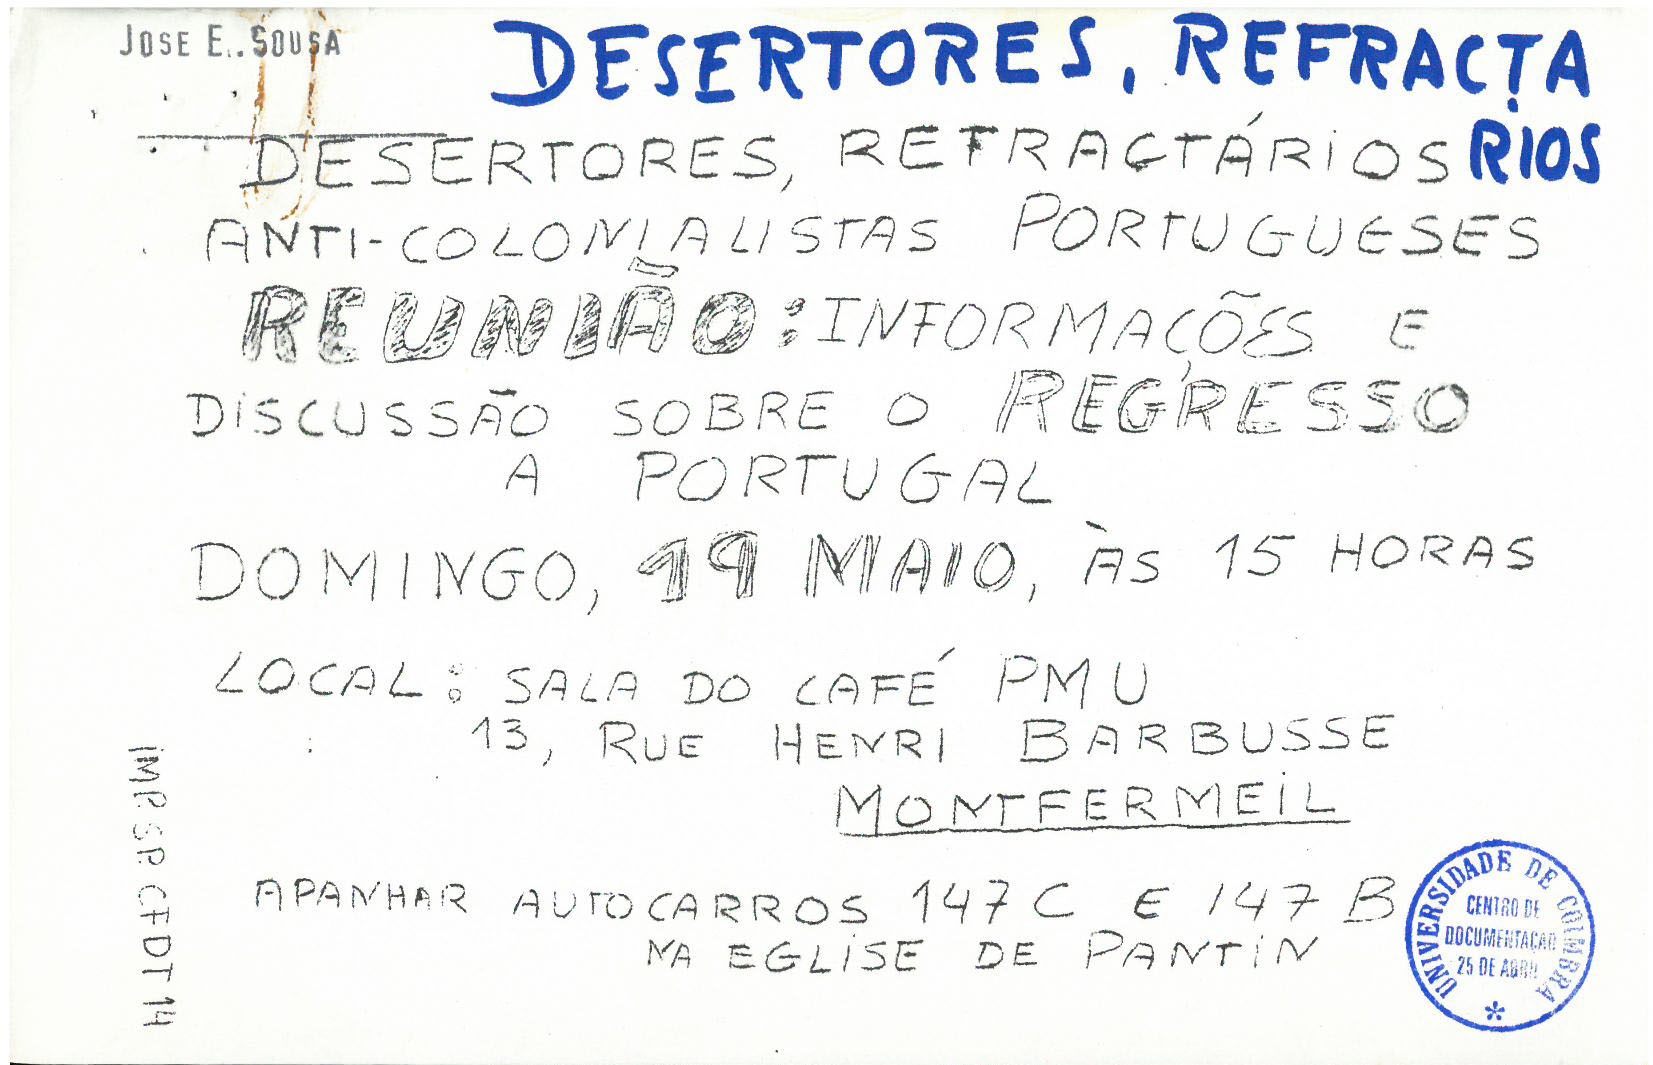 JOSE E. SOUSA
DESERTORES, REFRACTA
RIOS
DESERTORES, REFRACTÁRIOS
ANTI-COLONIALISTAS PORTUGUESES
REUNIÃO: INFORMAÇÕES E
DISCUSSÃO SOBRE O REGRESSO
A PORTUGAL
DOMINGO, 19 MAIO, ÀS 15 HORAS
LOCAL: SALA DO CAFÉ PMU
13, RUE HENRI BARBUSSE
MONTFERMEIL
APANHAR AUTOCARROS 147 C E 147 B
NA EGLISE DE PANTIN
IMP. SP. CFDT 14
UNIVERSIDADE DE COIMBRA
CENTRO DE
DOCUMENTAÇÃO
25 DE ABRIL
*